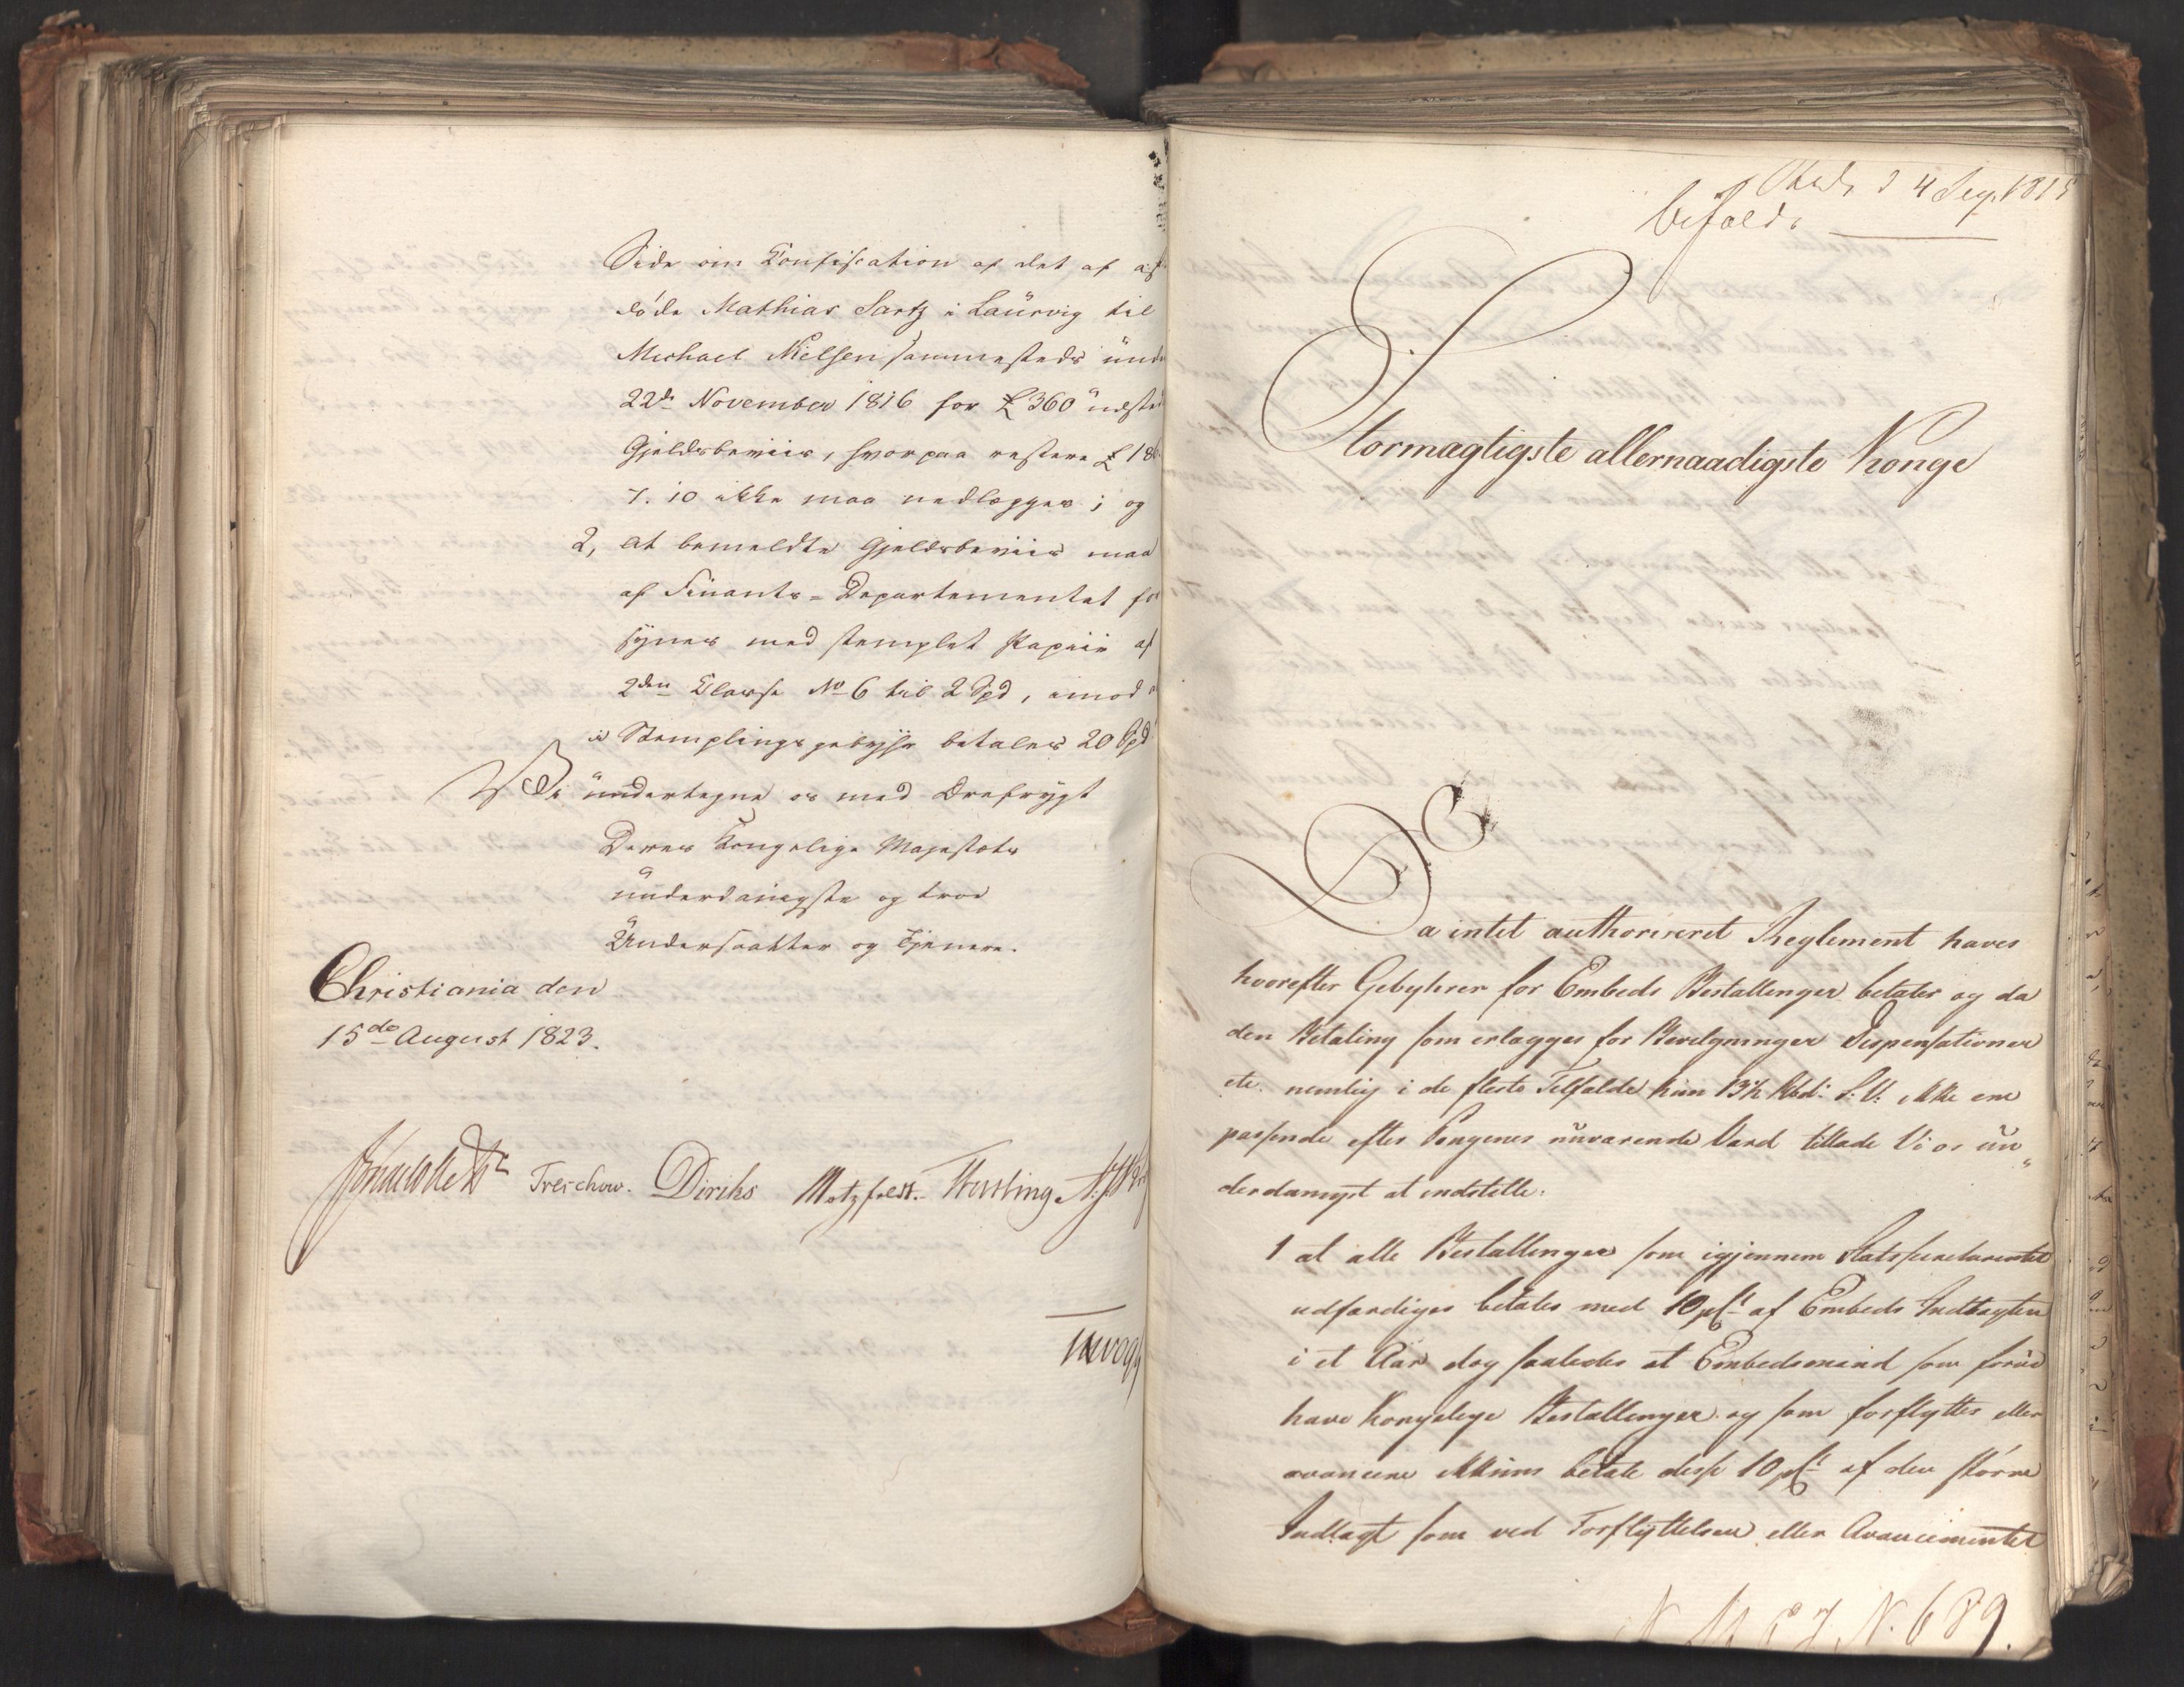 Side om Confiscation af det af af-
döde Mathias Sartz i Laurvig til
Michael Nielsen sammesteds und
22de November 1816 for £ 360 udsted
Gjeldsbeviis, hvorpaa restere £ 186
7. 10 ikke maa nedlægges; og
2, at bemeldte Gjeldsbeviis maa
af Finants-Departementet for
synes med stemplet Papiir af
2den Classe No 6 til 2 Spd, imod
Stemplingsgebyhr betales 20 Spd
Vi undertegne os med Ærefrygt
Deres Kongelige Majestæts
underdanigste og troe
Undersaatter og Tjenere.
Christiania den
15de August 1823.
Treschow. Diriks Motzfeldt.
4 Sep. 1815
Stormægtigste allernaadigste Konge
Da intet authoriseret Reglement haves
hvorefter Gebyhrer for Embeds Bestallinger betales og da
den Betaling som erlægges for Bevilgninger Dispensationer
etc. nemlig i de fleste Tilfælde kun 13½ Rbd: S: V: ikke ere
passende efter Pengenes nuværende Værd tillade Vi os un„
derdanigst at indstille:
1 at alle Bestallinger som igjennem Statssecretariatet
udfærdiges betales med 10 pCt af Embeds Indtægten
i et Aar dog saaledes at Embedsmænd som forud
have Kongelige Bestallinger og som forflyttes eller
avancere ikkuns betale disse 10 pCt af den større
Indtægt som ved Forflyttelsen eller Avancementet
N. 689.